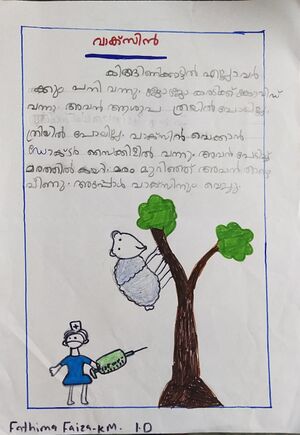 വാക്സിൻ
കിങ്ങിണിക്കാട്ടിൽ എല്ലാവർ
ക്കും പനി വന്നു. ജോജോ കരടിക്ക് കോവിഡ്
വന്നു. അവൻ ആശുപ ത്രിയിൽ പോയില്ല.
ത്രിയിൽ പോയില്ല. വാക്സിൻ വെക്കാൻ
ഡോക്ടർ സൈക്കിളിൽ വന്നു. അവൻ പേടിച്ച്
മരത്തിൽ കയറി. മരം മുറിഞ്ഞ് അവൻ താഴെ
വീണു. അപ്പോൾ വാക്സിനും വെച്ചു.
Fathima Faiza.K.M. 1.D